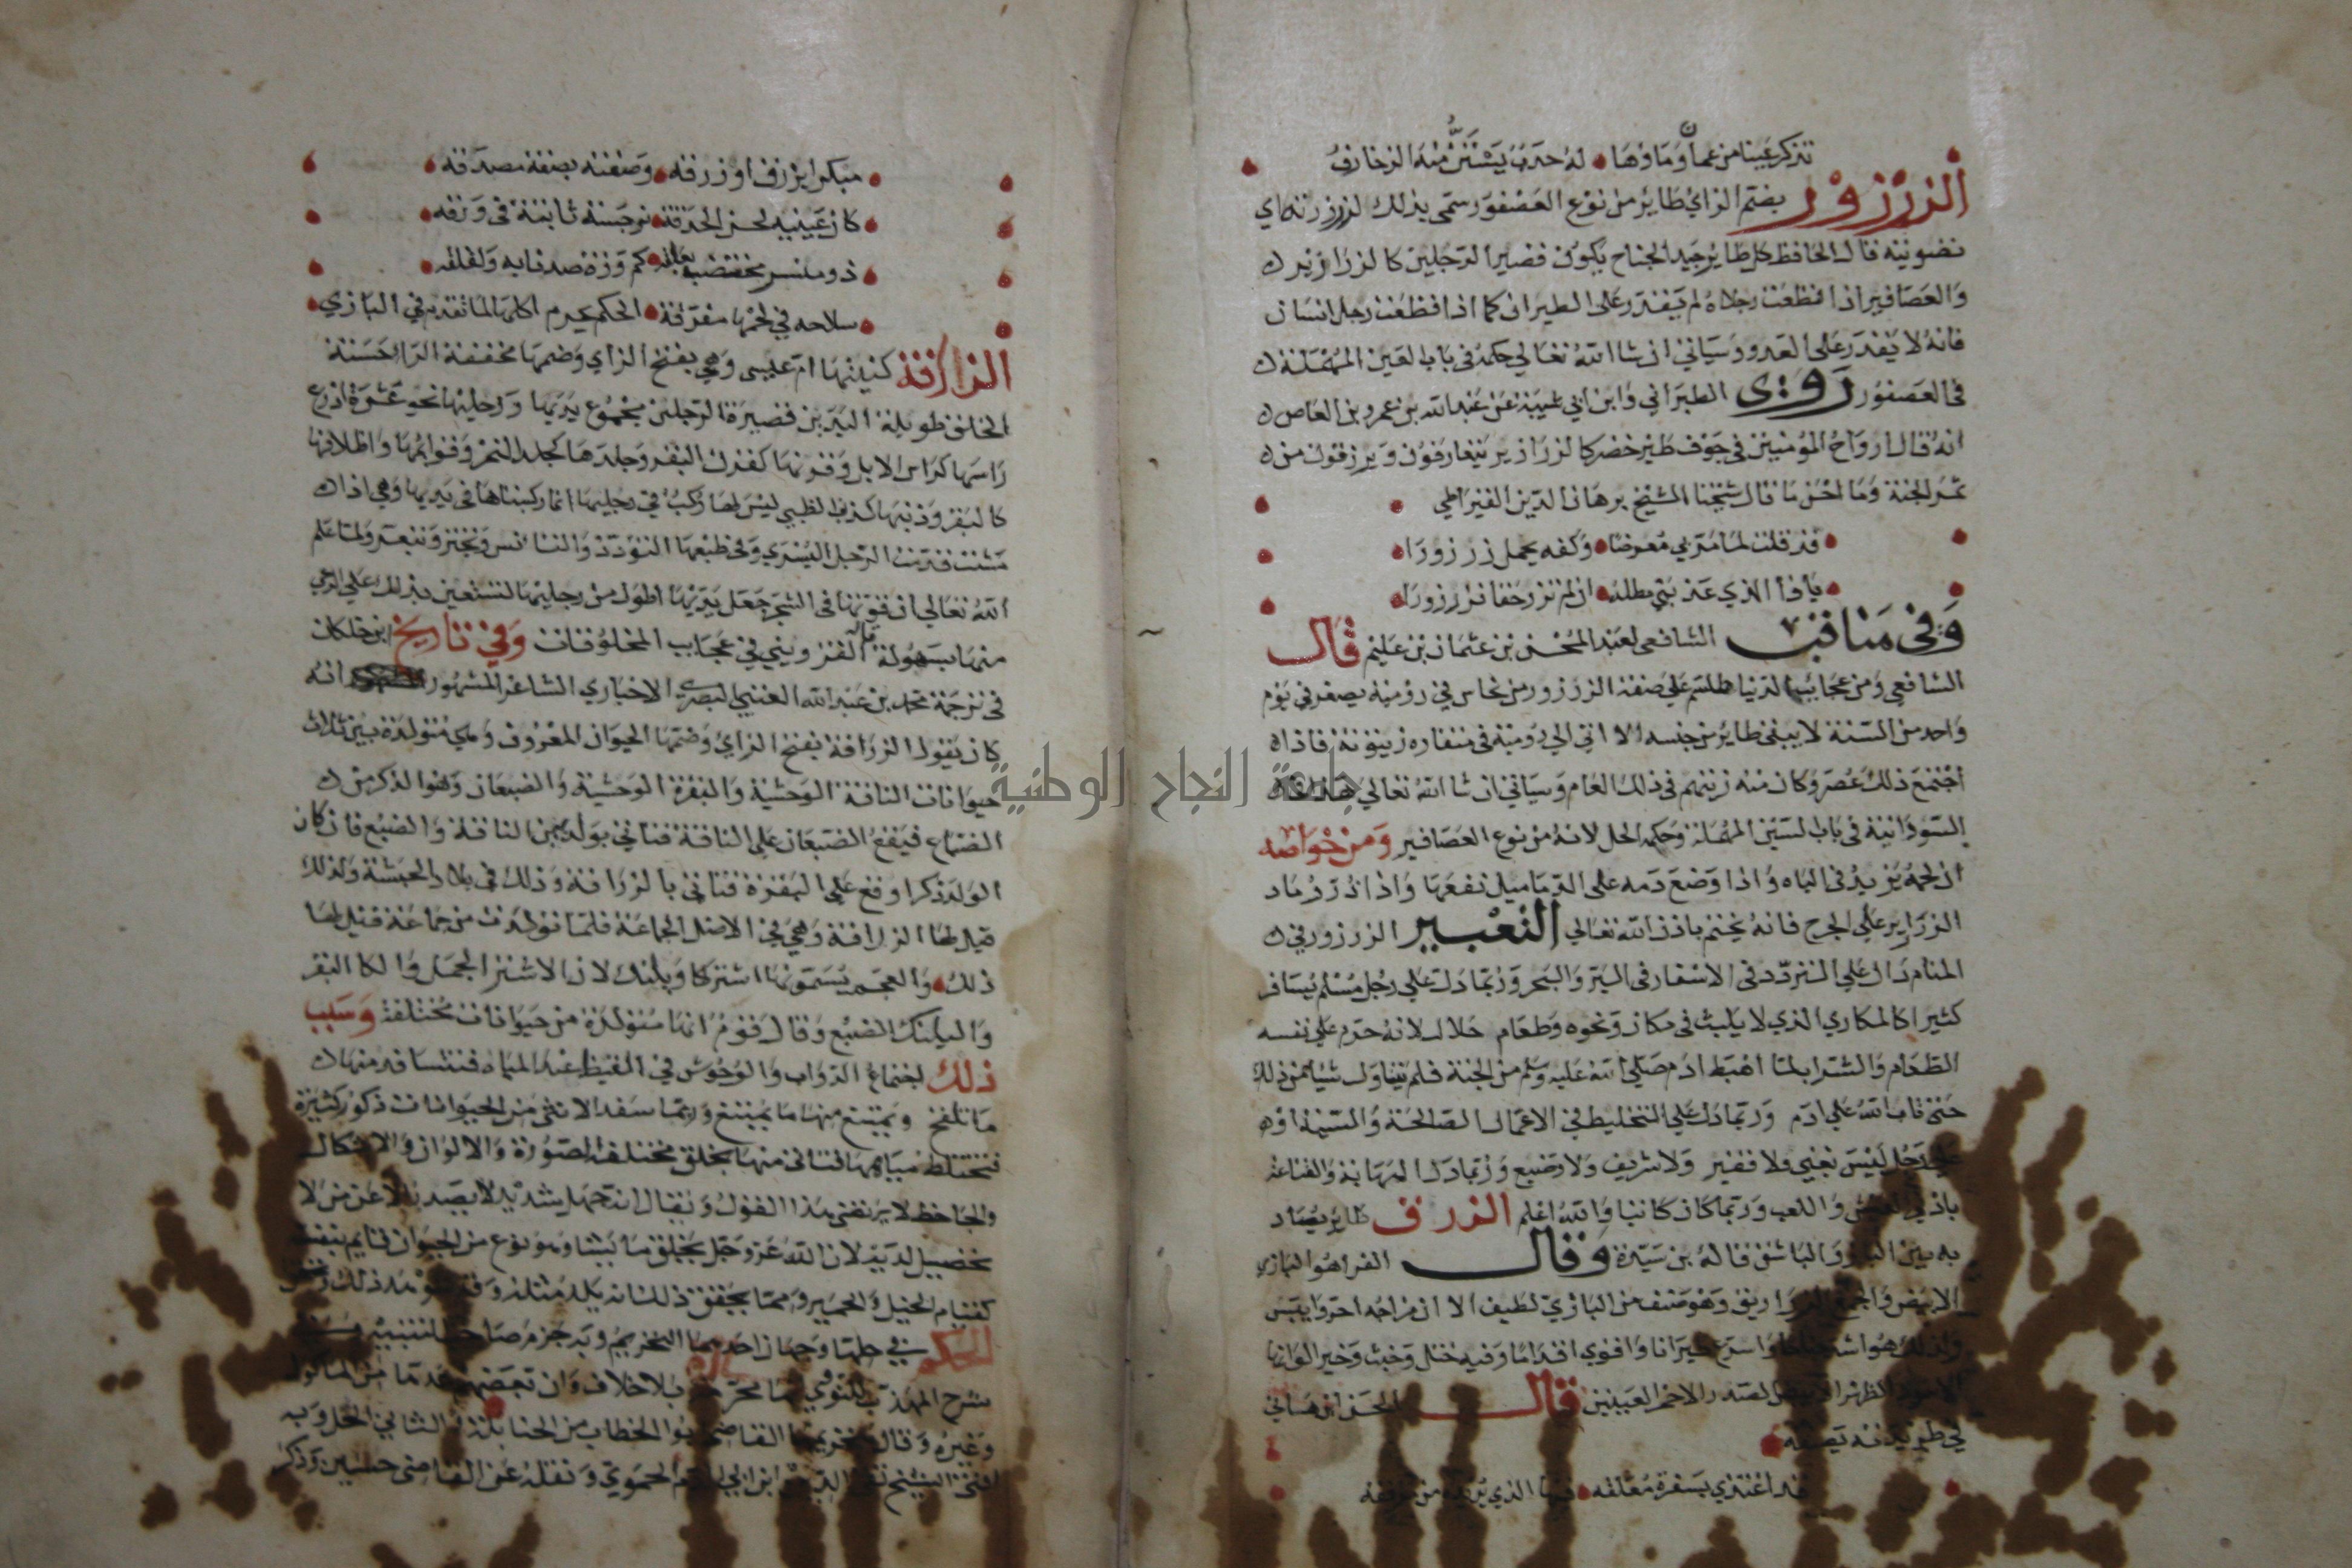 تذكر عينا من عمان وماوها له حدب يستن منه الزخارف
الزرزور بضم الزاي طاير من نوع العصفور سمى بذلك لزرزرته اي
تصويته قال الجاحظ كل طاير جيد الجناح يكون قصير الرجلين كالزرازير
والعصافير اذا قطعت رجلاه لم يقدر على الطيران كما اذا قطعت رجل انسان
فانه لا يقدر على العدو وسياتي ان شا الله تعالي حكمه فى باب العين المهملة
فى العصفور روى الطبراني وابن ابي شيبة عن عبد الله بن عمرو بن العاص
انه قال ارواح المومنين في جوف طير خضر كالزرازير يتعارفون ويرزقون من
ثمر الجنة وما احسن ما قال شيخنا الشيخ برهان الدين القيراطي
قد قلت لما مر بي معرضا وكفه يحمل زرزورا
يا ذا الذي عذبني مطله ان لم تزر حقا فزر زورا
وفى مناقب الشافعى لعبد المحسن بن عثمان بن غانم قال
الشافعي ومن عجايب الدنيا طلسم علي صفة الزرزور من نحاس في رومية يصفر في يوم
واحد من السنة لا يبقى طاير من جنسه الا اتي الي رومية فى منقاره زيتونة فاذا
اجتمع ذلك عصر وكان منه زيتهم فى ذلك العام وسياتي ان شا الله تعالي
السودانية فى باب السين المهملة وحكمه الحل لانه من نوع العصافير ومن خواصه
ان لحمه يزيد فى الباه واذا وضع دمه على الدماميل نفعها واذا ذر رماد
الزرازير علي الجرح فانه يختم باذن الله تعالي التعبير الزرزور في
المنام دال علي التردد فى الاسفار فى البر والبحر وربما دل علي رجل مسلم يسافر
كثيرا كالمكاري الذي لا يلبث فى مكان ونحوه وطعام حلال لانه حرم علي نفسه
الطعام والشراب لما اهبط ادم صلي الله عليه وسلم من الجنة فلم يتناول شيا من ذلك
حتى تاب الله علي ادم وربما دل علي التخليط في الاعمال الصالحة والسيية او
علي رجل ليس بغني ولا فقير ولا شريف ولا وضيع وربما دل المهانة والقناعة
بادني العيش واللعب وربما كان كاتبا والله اعلم الزرق طاير يصاد
به بين البازي والباشق قاله بن سيدة وقال الفرا هو البازي
الابيض والجمع الزراريق وهو صنف من البازي لطيف الا ان مزاجه احر وايبس
ولذلك هو اشد جناحا واسرع طيرانا واقوي اقداما وفيه ختل وخبث وخير الوانها
الاسود الظهر الابيض الصدر الاحمر العينين قال الحسن ابن هاني
في طريدته يصفه
قد اغتدي بسفرة معلقه فيها الذي يريده من مرفقه
مبكرا بزرق او زرقه وصفته بصفة مصدقه
كان عينيه لحسن الحدقه نرجسة نابتة فى ورقه
ذو منسر مختضب بعلقه كم وزة صدنا به ولقلقه
سلاحه في لحمها مفرقة الحكم يحرم اكلها لما تقدم في البازي
الزرافة كنيتها ام عيسى وهي بفتح الزاي وضمها مخففة الرا حسنة
الخلق طويلة اليدين قصيرة الرجلين مجموع يديها ورجليها نحو عشرة اذرع
راسها كراس الابل وقرنها كقرن البقر وجلدها كجلد النمر وقوايمها واظلافها
كالبقر وذنبها كذنب الظبي ليس لها ركب في رجليها انما ركبتاها فى يديها وهي اذا
مشت قدمت الرجل اليسري وفي طبعها التودد والتانس وتجتر وتبعر ولما علم
الله تعالي ان قوتها فى الشجر جعل يديها اطول من رجليها لتستعين بذلك علي الرعي
منها بسهولة قاله القزويني في عجايب المخلوقات وفي تاريخ ابن خلكان
فى ترجمة محمد بن عبد الله العتبي البصري الاخباري الشاعر المشهور انه
كان يقول الزرافة بفتح الزاي وضمها الحيوان المعروف وهي متولدة بين ثلاث
حيوانات الناقة الوحشية والبقرة الوحشية والضبعان وهو الذكر من
الضباع فيقع الضبعان علي الناقة فتاتي بولد بين الناقة والضبع فان كان
الولد ذكرا وقع علي البقرة فتاتي بالزرافة وذلك في بلاد الحبشة ولذلك
قيل لها الزرافة وهي في الاصل الجماعة فلما تولدت من جماعة قيل لها
ذلك والعجم يسمونها اشتركا وپلنك لان الاشتر الجمل والكا البقر
والپلنك الضبع وقال قوم انها متولدة من حيوانات مختلفة وسبب
ذلك اجتماع الدواب والوحوش في القيظ عند المياه فتتسافد منها
ما تلقح ويمتنع منها ما يمتنع وربما سفد الانثى من الحيوانات ذكور كثيرة
فتختلط مياهها فتاتى منها بخلق مختلف الصورة والالوان والاشكال
والجاحظ لا يرتضى هذا القول ويقال انه جهل شديد لا يصدر الا عن من لا
تحصيل لديه لان الله عز وجل يخلق ما يشا وهو نوع من الحيوان قايم بنفسه
كقيام الخيل والحمير ومما يحقق ذلك انه يلد مثله وقد شوهد ذلك
الحكم في حلها وجهان احدهما التحريم وبه جزم صاحب التنبيه
شرح المهذب للنووي انها محرمة بلا خلاف وان بعضهم عدها من الماكول
وغيره وقال بتحريمها القاضي ابو الخطاب من الحنابلة والثاني الحل وبه
افتى الشيخ تقي الدين ابن ابي الدم الحموي ونقله عن القاضى حسين وذكر
جامعة النجاح الوطنية